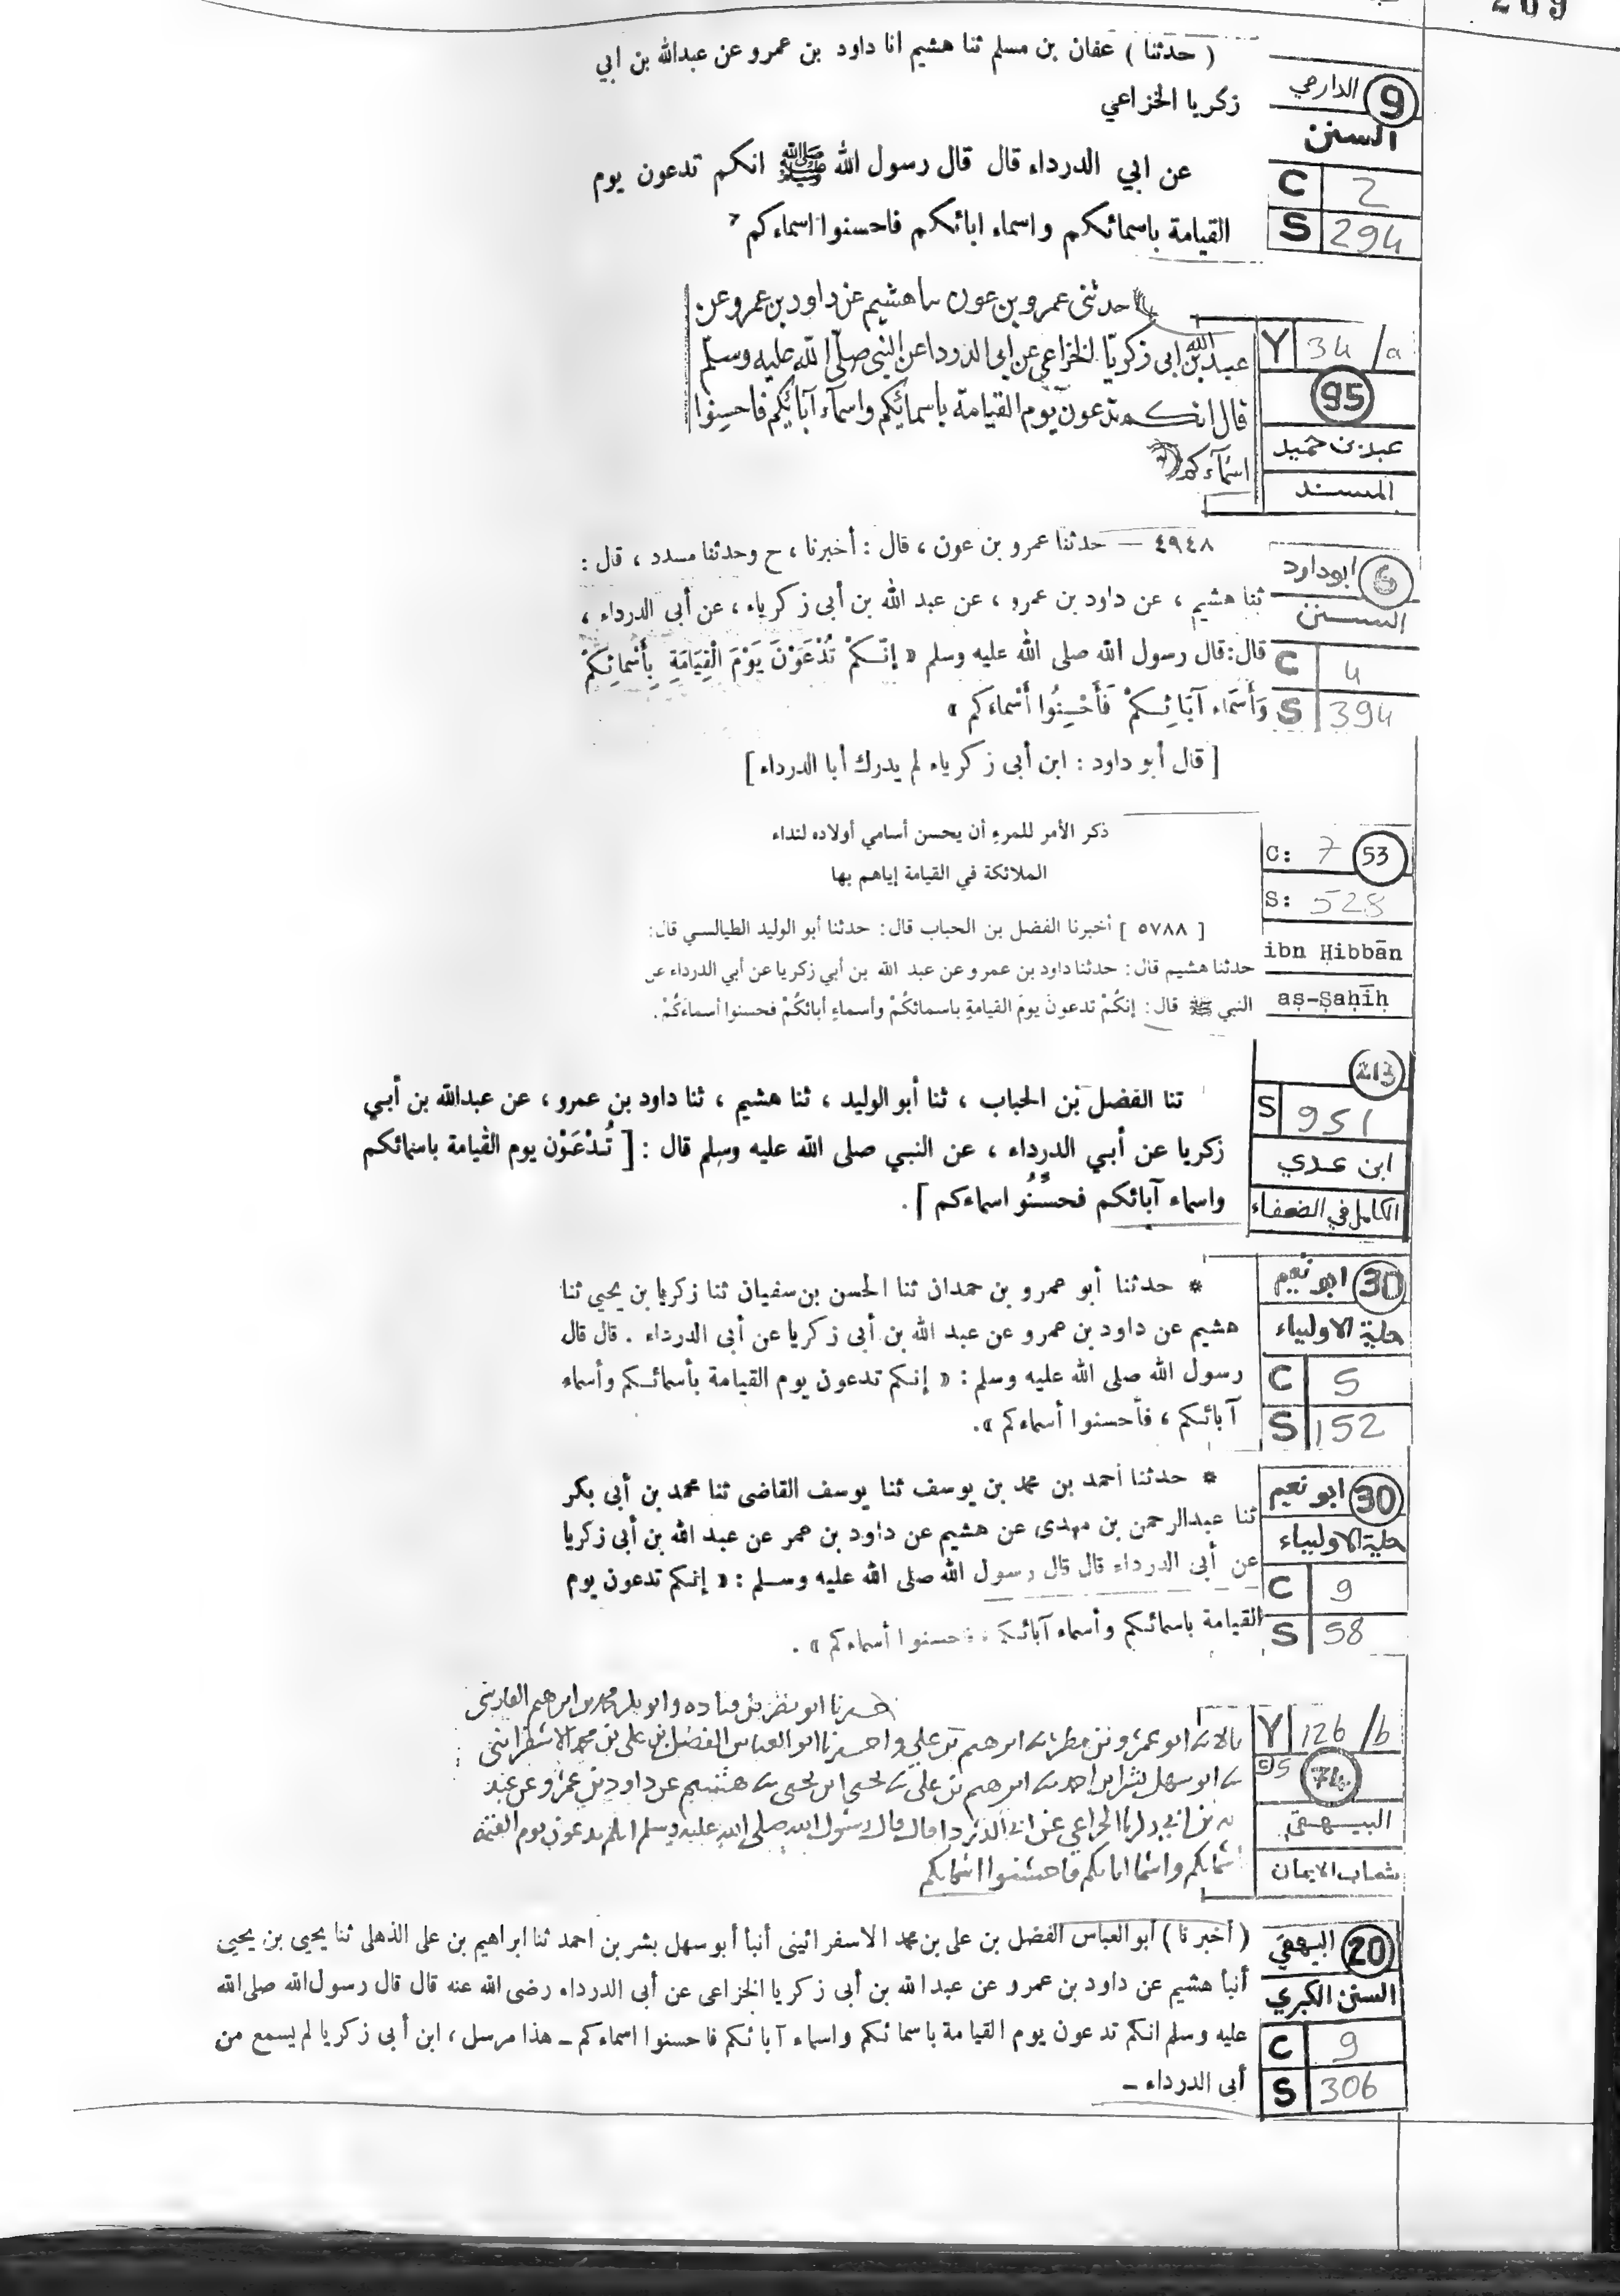 269
( حدثنا ) عفان بن مسلم ثنا هشيم انا داود بن عمرو عن عبدالله بن ابي
زكريا الخزاعي
عن ابي الدرداء قال قال رسول الله ﷺ انكم تدعون يوم
القيامة باسمائكم واسماء ابائكم فاحسنوا اسماءكم
9 الدارمي
السنن
C 2
S 294
حدثنى عمرو بن عون سا هشيم عن داود بن عمرو عن
عبد الله بن ابى زكريا الخزاعى عن ابى الدردا عن النبى صلى الله عليه وسلم
قال انكم تدعون يوم القيامة باسمائكم واسمآء آبائكم فاحسنوا
اسمآءكم
Y 34 /a
95
عبد بن حميد
المسند
٤٩٤٨ — حدثنا عمرو بن عون ، قال : أخبرنا ، ح وحدثنا مسدد ، قال :
ثنا هشيم ، عن داود بن عمرو ، عن عبد الله بن أبى زكرياء ، عن أبى الدرداء ،
قال: قال رسول الله صلى الله عليه وسلم « إنَّكُمْ تُدْعَوْنَ يَوْمَ الْقِيَامَةِ بِأَسْمائِكُمْ
وَأَسْمَاء آبَائِكُمْ فَأَحْسِنُوا أَسْماءكم »
[ قال أبو داود : ابن أبى زكرياء لم يدرك أبا الدرداء ]
6 ابوداود
السنن
C 4
S 394
ذكر الأمر للمرء أن يحسن أسامي أولاده لنداء
الملائكة في القيامة إياهم بها
[ ٥٧٨٨ ] أخبرنا الفضل بن الحباب قال: حدثنا أبو الوليد الطيالسي قال:
حدثنا هشيم قال: حدثنا داود بن عمرو عن عبد الله بن أبي زكريا عن أبي الدرداء عن
النبي ﷺ قال: إنكُمْ تدعونَ يومَ القيامةِ باسمائكُمْ وأسماءِ أبائكُمْ فحسنوا أسماءَكُمْ.
C: 7 53
S: 528
ibn Ḥibbān
aṣ-Ṣaḥīḥ
ثنا الفضل بن الحباب ، ثنا أبو الوليد ، ثنا هشيم ، ثنا داود بن عمرو ، عن عبدالله بن أبي
زكريا عن أبي الدرداء ، عن النبي صلى الله عليه وسلم قال : [ تُدْعَوْن يوم القيامة باسمائكم
واسماء آبائكم فحسّنُو اسماءكم ] .
213
S 951
ابن عدي
الكامل في الضعفاء
* حدثنا أبو عمرو بن حمدان ثنا الحسن بن سفيان ثنا زكريا بن يحيى ثنا
هشيم عن داود بن عمرو عن عبد الله بن أبى زكريا عن أبى الدرداء . قال قال
رسول الله صلى الله عليه وسلم : « إنكم تدعون يوم القيامة بأسمائكم وأسماء
آبائكم ، فأحسنوا أسماءكم ».
30 ابو نعيم
حلية الاولياء
C 5
S 152
* حدثنا أحمد بن محمد بن يوسف ثنا يوسف القاضى ثنا محمد بن أبى بكر
ثنا عبدالرحمن بن مهدى عن هشيم عن داود بن عمر عن عبد الله بن أبى زكريا
عن أبى الدرداء قال قال رسول الله صلى الله عليه وسلم : « إنكم تدعون يوم
القيامة باسمائكم وأسماء آبائكم ، فحسنوا أسماءكم » .
30 ابو نعيم
حلية الاولياء
C 9
S 58
ابو عمرو بن مطر ابرهيم بن علي ابو العباس الفضل بن على بن محمد الاسفراينى
ابو سهل بشر بن احمد ابرهيم بن على يحيى ابن يحيى هشيم عن داود بن عمرو عن عبد
الخزاعي عن ابى الدردا قال قال رسول الله صلى الله عليه وسلم انكم تدعون يوم القيمة
واسما ابائكم فاحسنوا اسمائكم
Y 126 /b
74
البيهقي
شعاب الايمان
( أخبرنا ) أبو العباس الفضل بن على بن محمد الاسفرائينى أنبأ أبو سهل بشر بن احمد ثنا ابراهيم بن على الذهلى ثنا يحيى بن يحيى
أنبأ هشيم عن داود بن عمرو عن عبد الله بن أبى زكريا الخزاعى عن أبى الدرداء رضى الله عنه قال قال رسول الله صلى الله
عليه وسلم انكم تدعون يوم القيامة باسمائكم واسماء آبائكم فاحسنوا اسماءكم ـ هذا مرسل ، ابن أبى زكريا لم يسمع من
أبى الدرداء ـ
20 البيهقي
السنن الكبري
C 9
S 306